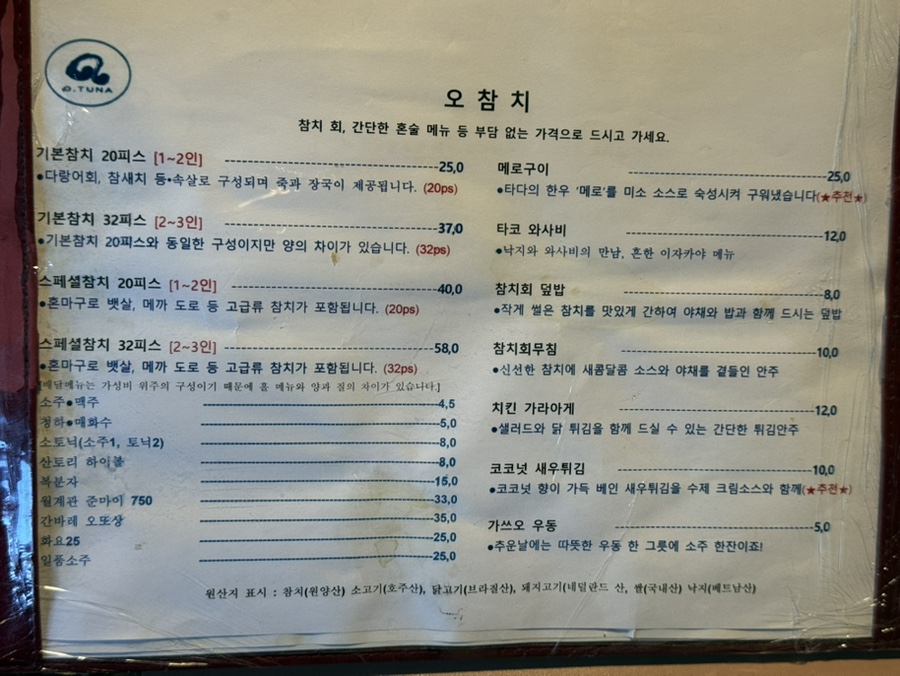 O.TUNA
오 참 치
참치 회, 간단한 혼술 메뉴 등 부담 없는 가격으로 드시고 가세요.
기본참치 20피스 [1~2인] 25,0
●다랑어회, 참새치 등•속살로 구성되며 죽과 장국이 제공됩니다. (20ps)
기본참치 32피스 [2~3인] 37,0
●기본참치 20피스와 동일한 구성이지만 양의 차이가 있습니다. (32ps)
스페셜참치 20피스 [1~2인] 40,0
●혼마구로 뱃살, 메까 도로 등 고급류 참치가 포함됩니다. (20ps)
스페셜참치 32피스 [2~3인] 58,0
●혼마구로 뱃살, 메까 도로 등 고급류 참치가 포함됩니다. (32ps)
[배달메뉴는 가성비 위주의 구성이기 때문에 홀 메뉴와 양과 질의 차이가 있습니다.]
소주●맥주 4,5
청하●매화수 5,0
소토닉(소주1, 토닉2) 8,0
산토리 하이볼 8,0
복분자 15,0
월계관 준마이 750 33,0
간바레 오또상 35,0
화요25 25,0
일품소주 25,0
메로구이 25,0
●타다의 한우 '메로'를 미소 소스로 숙성시켜 구워냈습니다(★추천★)
타코 와사비 12,0
●낙지와 와사비의 만남, 흔한 이자카야 메뉴
참치회 덮밥 8,0
●작게 썰은 참치를 맛있게 간하여 야채와 밥과 함께 드시는 덮밥
참치회무침 10,0
●신선한 참치에 새콤달콤 소스와 야채를 곁들인 안주
치킨 가라아게 12,0
●샐러드와 닭 튀김을 함께 드실 수 있는 간단한 튀김안주
코코넛 새우튀김 10,0
●코코넛 향이 가득 베인 새우튀김을 수제 크림소스와 함께(★추천★)
가쓰오 우동 5,0
●추운날에는 따뜻한 우동 한 그릇에 소주 한잔이죠!
원산지 표시 : 참치(원양산) 소고기(호주산), 닭고기(브라질산), 돼지고기(네덜란드 산, 쌀(국내산) 낙지(베트남산)